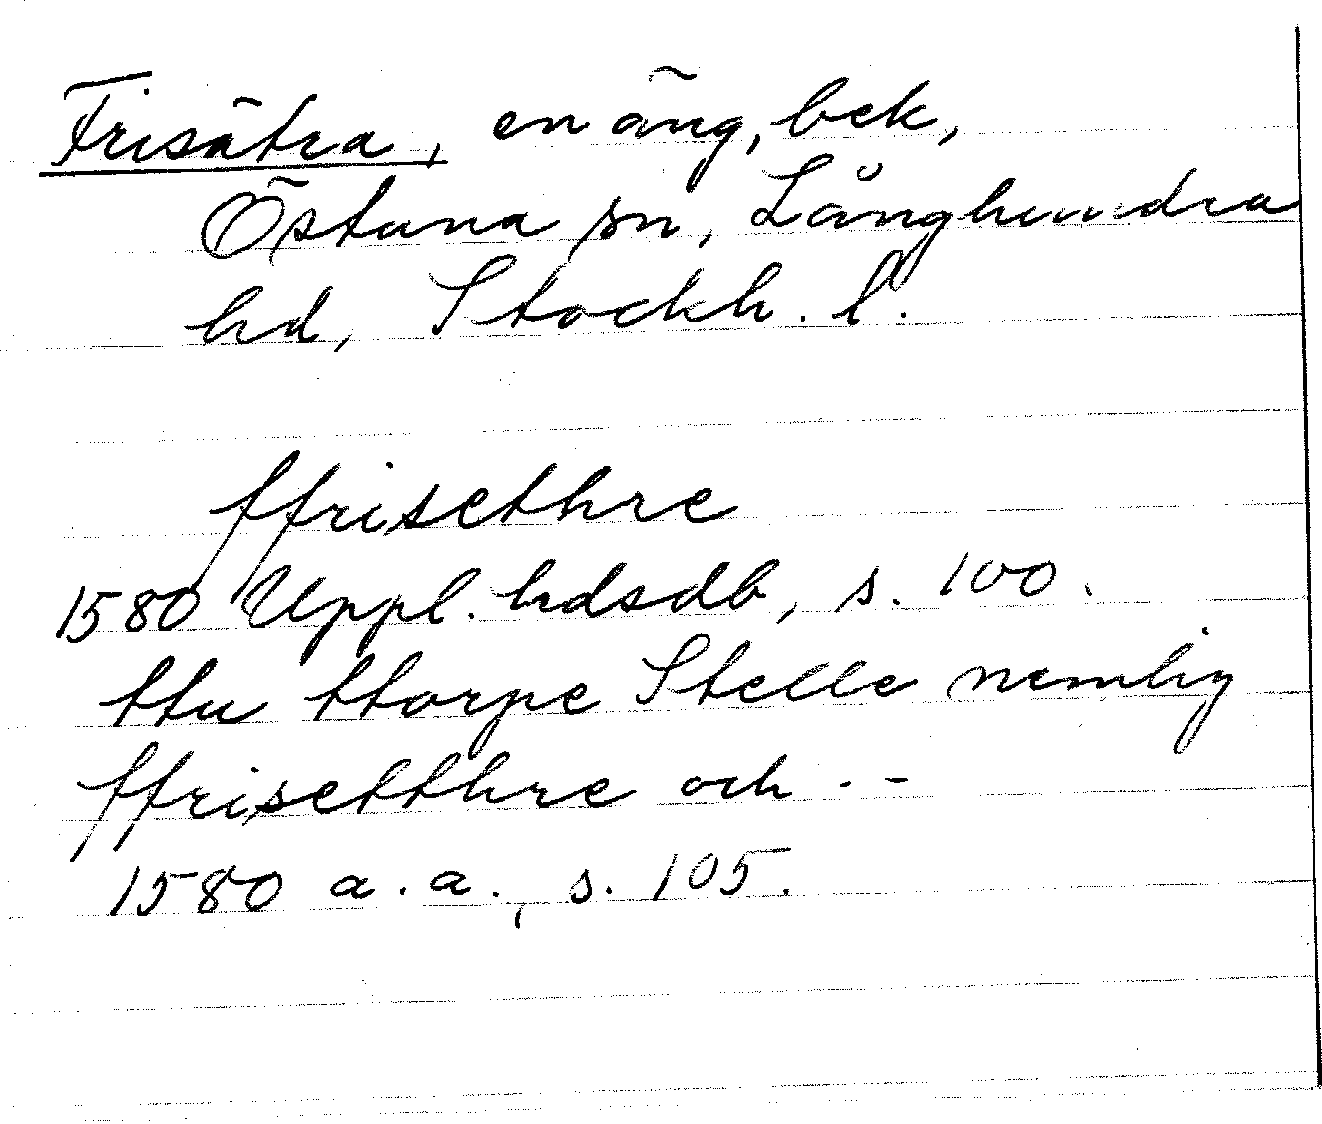 Frisätra, en äng, bek,
Östuna sn, Långhundra
hd, Stockh. l.
ffrisethre
1580 Uppl. hdsdb, s. 100.
ttu ttorpe Stelle nemlig
ffrisetthre och . -
1580 a. a., s. 105.